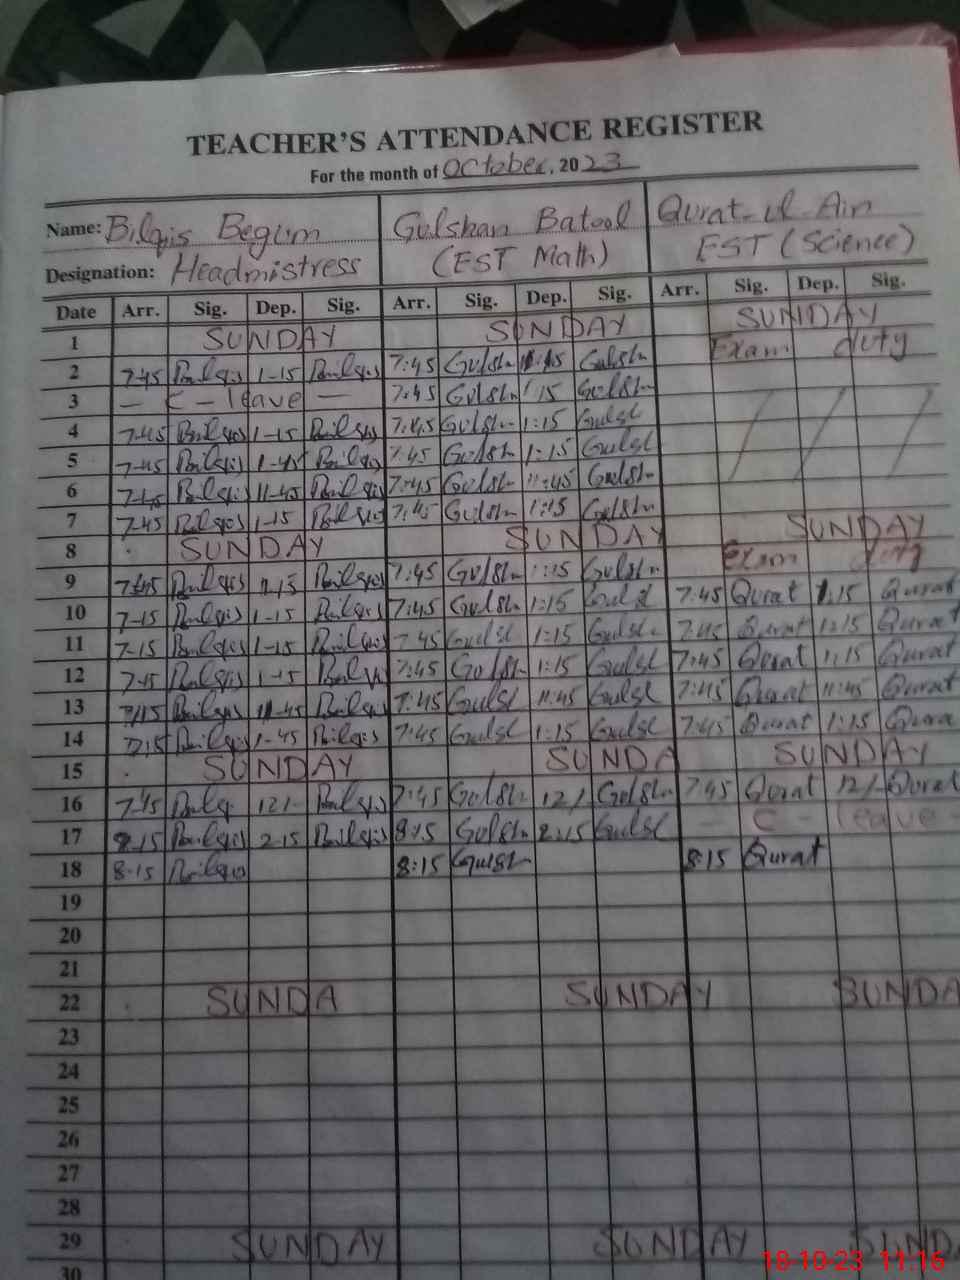 TEACHER'S ATTENDANCE REGISTER
For the month of October, 2023
Name: Bilqis Begum Gulshan Batool Qurat-ul-Ain
Designation: Headmistress (EST Math) EST (Science)
Date Arr. Sig. Dep. Sig. Arr. Sig. Dep. Sig. Arr. Sig. Dep. Sig.
1 SUNDAY SUNDAY SUNDAY
2 7-45 Bilqis 1-15 Bilqis 7:45 Gulsh Gulsh Exam duty
3 — C - leave — 7:45 Gulsh 1:15 Gulsh
4 7-45 Bilqis 1-15 Bilqis 7:45 Gulsh 1:15 Gulsh
5 7-45 Bilqis 1-45 Bilqis 7:45 Gulsh 1:15 Gulsh
6 7-45 Bilqis 11-45 Bilqis 7:45 Gulsh 11:45 Gulsh
7 7-45 Bilqis 1-15 Bilqis 7:45 Gulsh 1:15 Gulsh
8 SUNDAY SUNDAY SUNDAY
9 7-45 Bilqis 1-15 Bilqis 7:45 Gulsh 1:15 Gulsh Exam duty
10 7-15 Bilqis 1-15 Bilqis 7:45 Gulsh 1:15 Gulsh 7:45 Qurat 1:15 Qurat
11 7-15 Bilqis 1-15 Bilqis 7:45 Gulsh 1:15 Gulsh 7:45 Qurat 1:15 Qurat
12 7-15 Bilqis 1-15 Bilqis 7:45 Gulsh 1:15 Gulsh 7:45 Qurat 1:15 Qurat
13 7-15 Bilqis 11-45 Bilqis 7:45 Gulsh 11:45 Gulsh 7:45 Qurat 11:45 Qurat
14 7-15 Bilqis 1-45 Bilqis 7:45 Gulsh 1:15 Gulsh 7:45 Qurat 1:15 Qurat
15 SUNDAY SUNDA SUNDAY
16 7-45 Bilqis 12/- Bilqis 7:45 Gulsh 12/- Gulsh 7:45 Qurat 12/- Qurat
17 8-15 Bilqis 2-15 Bilqis 8:15 Gulsh 2:15 Gulsh — C - leave -
18 8-15 Bilqis 8:15 Gulsh 8:15 Qurat
19
20
21
22 SUNDA SUNDAY SUNDA
23
24
25
26
27
28
29 SUNDAY SUNDAY SUND
30
18-10-23 11:16